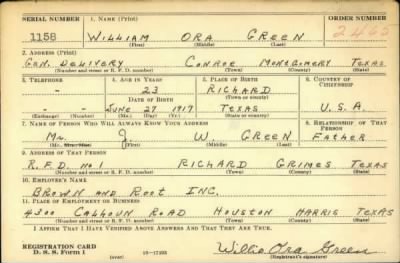 SERIAL NUMBER 1. NAME (Print) ORDER NUMBER
1158 WILLIAM ORA GREEN 2465
(First) (Middle) (Last)
2. ADDRESS (Print)
GEN. DELIVERY CONROE MONTGOMERY TEXAS
(Number and street or R. F. D. number) (Town) (County) (State)
3. TELEPHONE 4. AGE IN YEARS 5. PLACE OF BIRTH 6. COUNTRY OF
CITIZENSHIP
- 23 RICHARD
DATE OF BIRTH (Town or county)
- JUNE 27 1917 TEXAS U.S.A.
(Exchange) (Number) (Mo.) (Day) (Yr.) (State or country)
7. NAME OF PERSON WHO WILL ALWAYS KNOW YOUR ADDRESS 8. RELATIONSHIP OF THAT
PERSON
MR. J W. GREEN FATHER
(Mr., Mrs., Miss) (First) (Middle) (Last)
9. ADDRESS OF THAT PERSON
R.F.D. NO 1 RICHARD GRIMES TEXAS
(Number and street or R. F. D. number) (Town) (County) (State)
10. EMPLOYER'S NAME
BROWN AND ROOT INC.
11. PLACE OF EMPLOYMENT OR BUSINESS
4300 CALHOUN ROAD HOUSTON HARRIS TEXAS
(Number and street or R. F. D. number) (Town) (County) (State)
I AFFIRM THAT I HAVE VERIFIED ABOVE ANSWERS AND THAT THEY ARE TRUE.
REGISTRATION CARD
D. S. S. Form 1 (over) 16-17105 Willie Ora Green
(Registrant's signature)